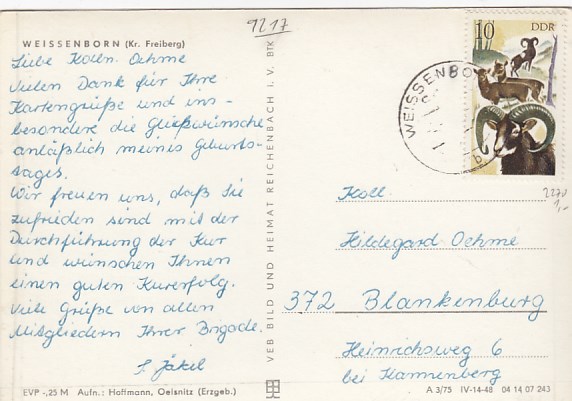 9217
WEISSENBORN (Kr. Freiberg)
Liebe Kolln. Oehme
Vielen Dank für Ihre
Kartengrüße und ins-
besondere die Glückwünsche
anläßlich meines Geburts-
tages.
Wir freuen uns, daß Sie
zufrieden sind mit der
Durchführung der Kur
und wünschen Ihnen
einen guten Kurerfolg.
Viele Grüße von allen
Mitgliedern Ihrer Brigade.
Jäkel
EVP -,25 M Aufn.: Hoffmann, Oelsnitz (Erzgeb.)
VEB BILD UND HEIMAT REICHENBACH I. V. BTK
10 DDR
WEISSENBO
b
2270
1,-
Koll.
Hildegard Oehme
372 Blankenburg
Heinrichsweg 6
bei Kannenberg
A 3/75 IV-14-48 04 14 07 243